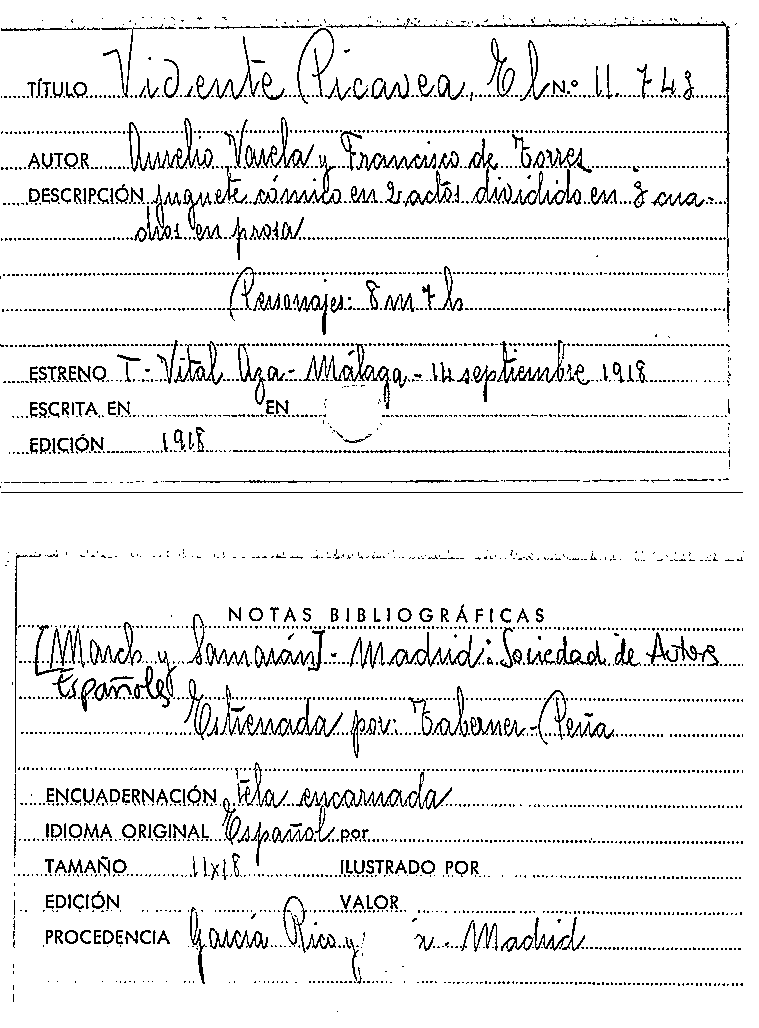 TÍTULO Vidente Picavea, El N.º 11.743
AUTOR Aurelio Varela y Francisco de Torres
DESCRIPCIÓN juguete cómico en 2 actos dividido en 3 cua-
dros en prosa
Personajes: 8 m 7 h
ESTRENO T. Vital Aza - Málaga - 14 septiembre 1918
ESCRITA EN EN
EDICIÓN 1918
NOTAS BIBLIOGRÁFICAS
[March y Samarán] - Madrid: Sociedad de Autores
Españoles
Estrenada por: Taberner-Peña
ENCUADERNACIÓN tela encarnada
IDIOMA ORIGINAL Español por
TAMAÑO 11x18 ILUSTRADO POR
EDICIÓN VALOR
PROCEDENCIA García Rico y - Madrid